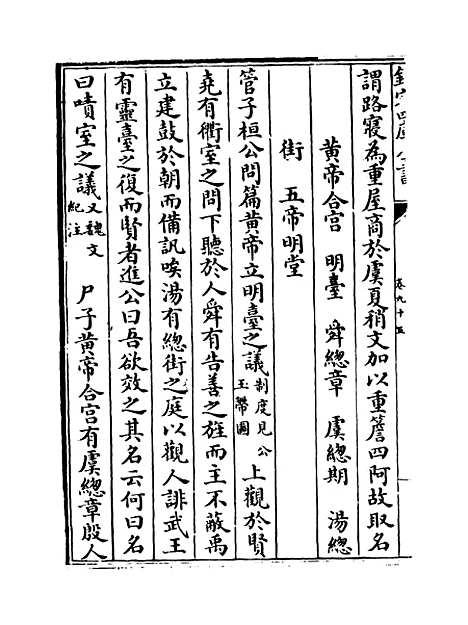 欽定四庫全書
卷九十五
謂路寢為重屋商於虞夏稍文加以重簷四阿故取名
黄帝合宫　明臺　舜總章　虞總期　湯總
街　五帝明堂
管子桓公問篇黄帝立明臺之議制度見公玉帶圖上觀於賢
堯有衢室之問下聽於人舜有告善之旌而主不蔽禹
立建鼓於朝而備訊唉湯有總街之庭以觀人誹武王
有靈臺之復而賢者進公曰吾欲效之其名云何曰名
曰嘖室之議又魏文紀注　尸子黄帝合宫有虞總章殷人